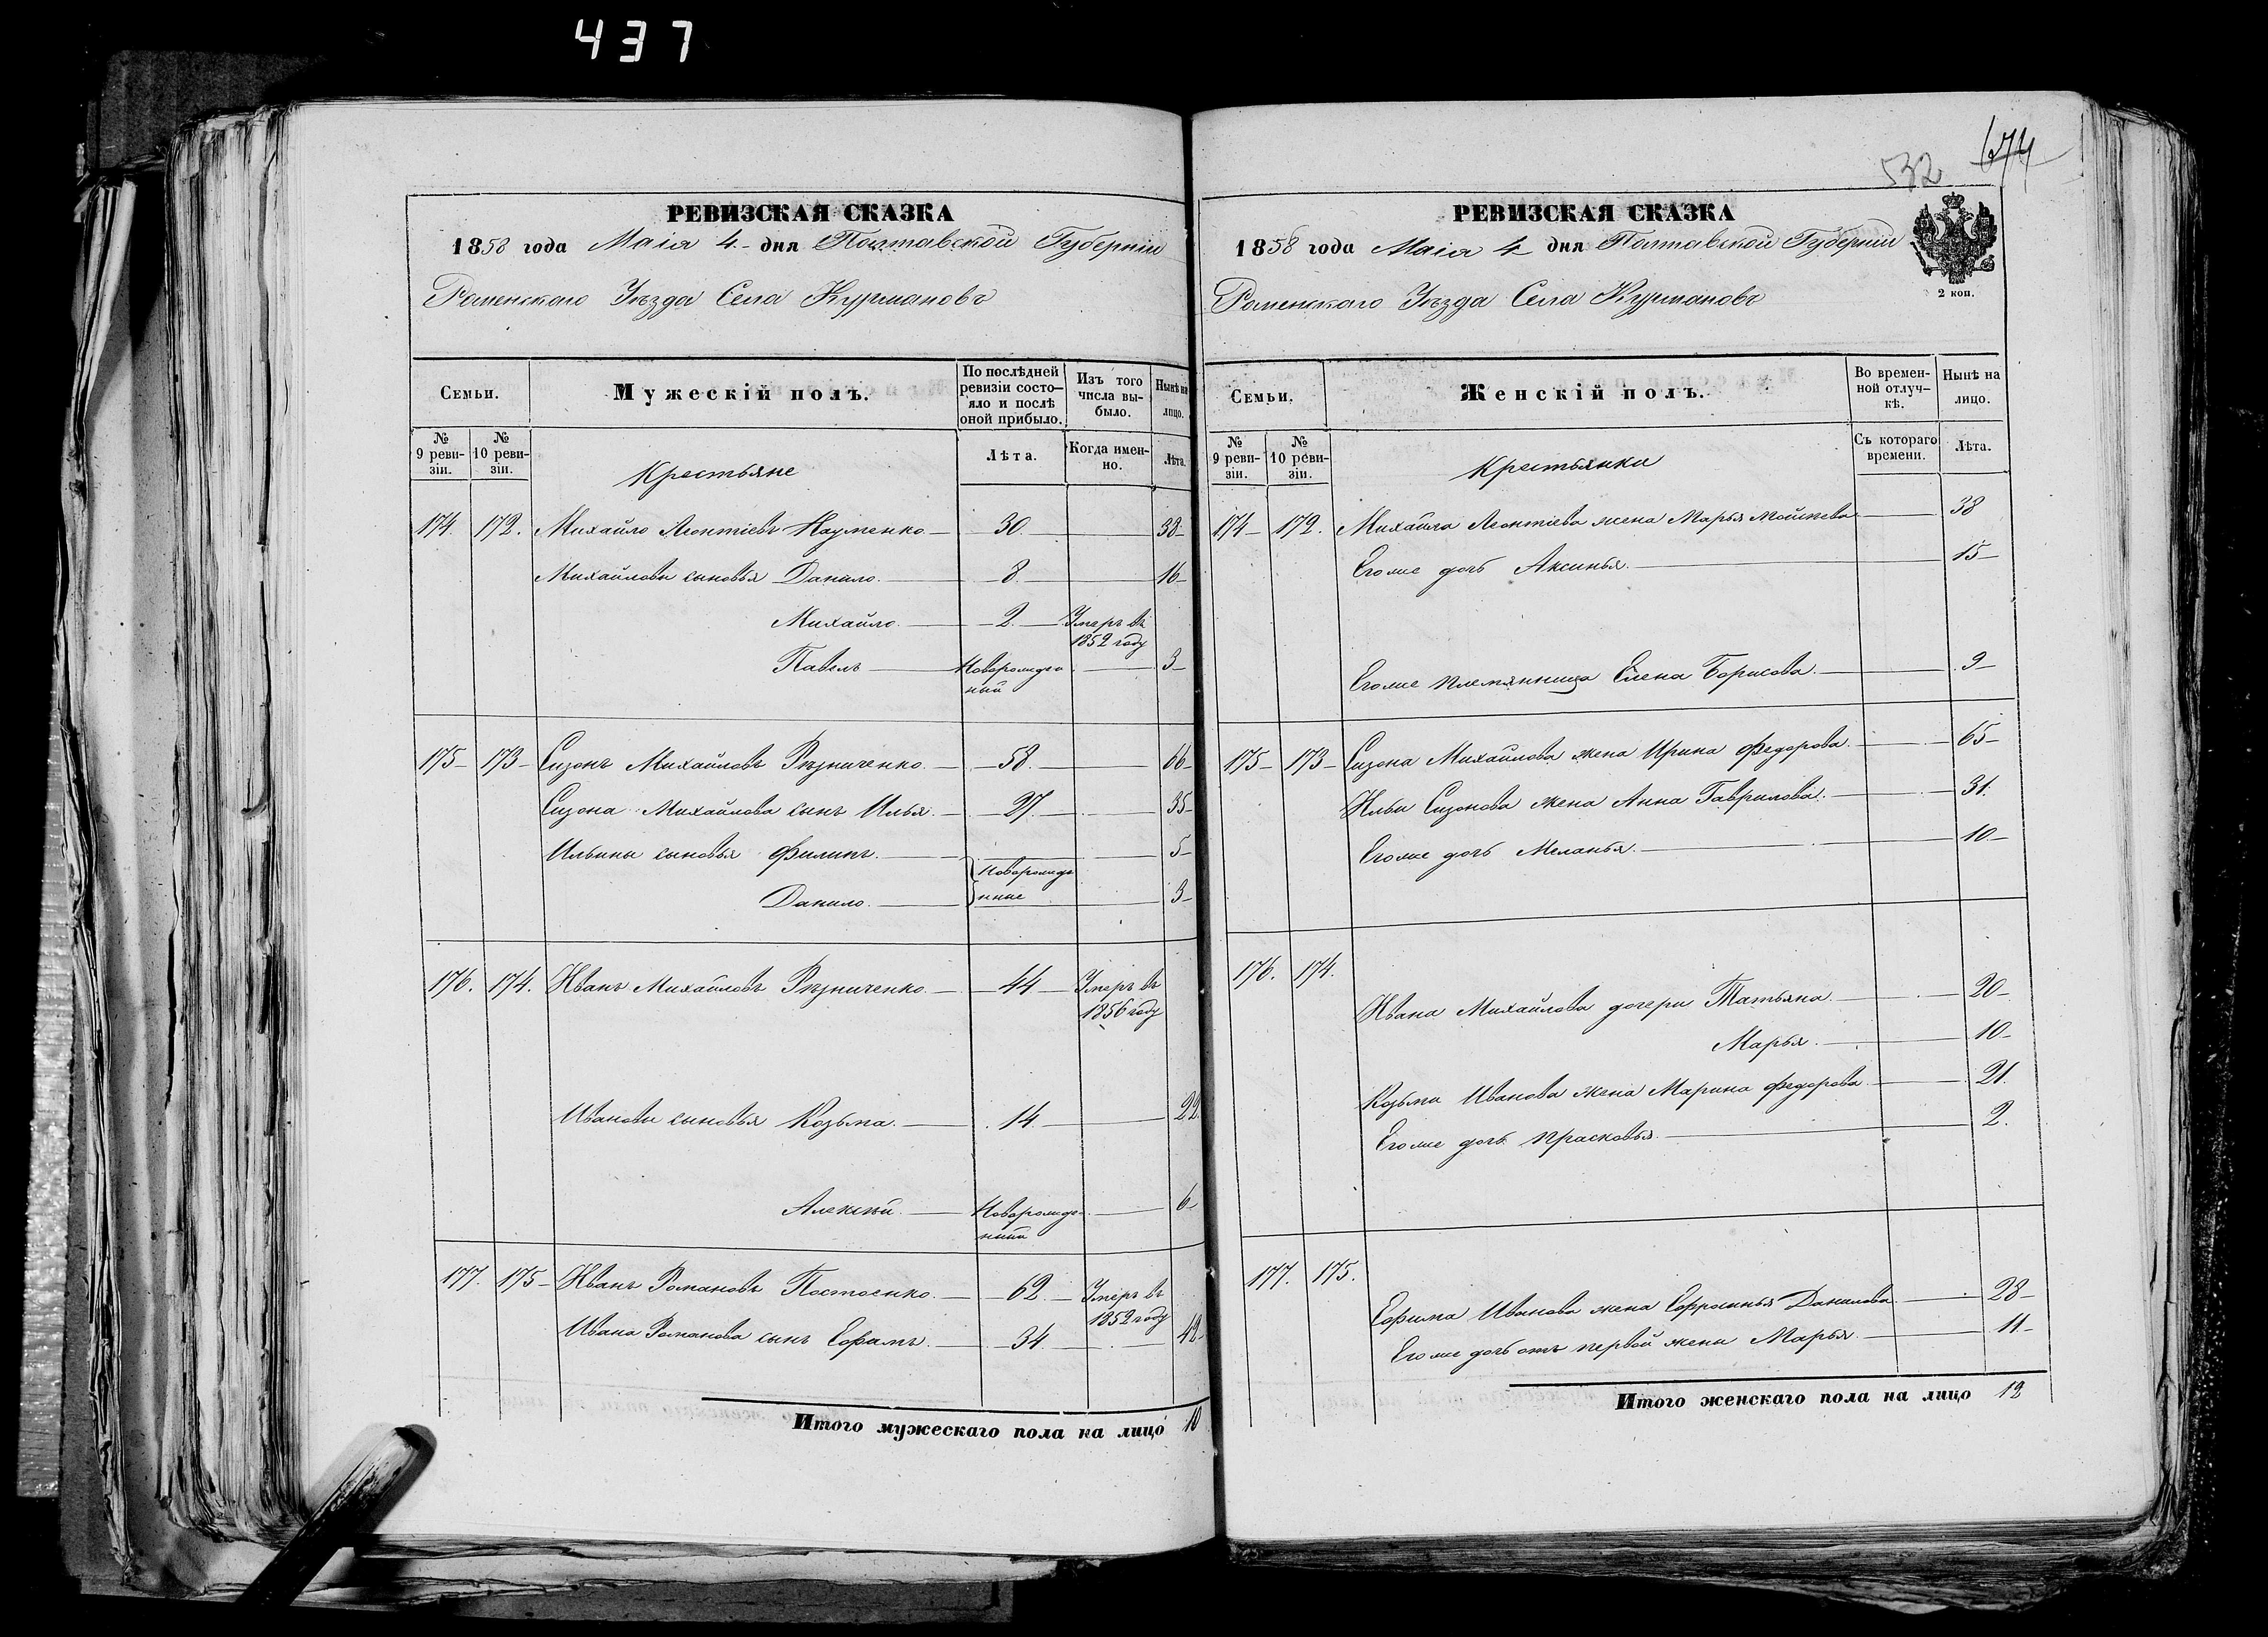 437
РЕВИЗСКАЯ СКАЗКА
1858 года Маія 4 дня Полтавской Губерніи
Роменскаго Уѣзда Села Курмановъ
Семьи.
Мужескій полъ.
По послѣдней ревизіи состояло и послѣ оной прибыло.
Изъ того числа выбыло.
Нынѣ на лицо.
№ 9 ревизіи.
№ 10 ревизіи.
Крестьяне
Лѣта.
Когда именно.
Лѣта.
174. 172. Михайло Леонтіевъ Науменко 30. 38
Михайловы сыновья Данило. 8. 16
Михайло. 2. Умеръ въ 1852 году
Павелъ Новорожденный 3
175 173 Сизонъ Михайловъ Рѣзниченко 58. 66
Сизона Михайлова сынъ Илья. 27. 35
Ильины сыновья Филипъ. 5
Новорожденные
Данило. 3
176. 174. Иванъ Михайловъ Рѣзниченко. 44 Умеръ въ 1856 году
Ивановы сыновья Козьма. 14. 22
Алексѣй. Новорожденный 6
177. 175 Иванъ Романовъ Постоенко. 62. Умеръ въ 1852 году
Ивана Романова сынъ Ефимъ. 34. 42
Итого мужескаго пола на лицо 10
532 174
РЕВИЗСКАЯ СКАЗКА
1858 года Маія 4 дня Полтавской Губерніи
Роменскаго Уѣзда Села Курмановъ
2 коп.
Семьи.
Женскій полъ.
Во временной отлучкѣ.
Нынѣ на лицо.
№ 9 ревизіи.
№ 10 ревизіи.
Крестьянки
Съ котораго времени.
Лѣта.
174 172. Михайла Леонтіева жена Марья Мойсѣева 38
Его же дочь Аксинья. 15
Его же племянница Елена Борисова. 9
175 173 Сизона Михайлова жена Ирина Федорова. 65
Ильи Сизонова жена Анна Гаврилова. 31.
Его же дочь Меланья. 10
176. 174.
Ивана Михайлова дочери Татьяна. 20
Марья. 10
Козьмы Иванова жена Марина Федорова. 21.
Его же дочь Прасковья. 2.
177. 175.
Ефима Иванова жена Ефросинья Данилова 28
Его же дочь отъ первой жены Марья. 11.
Итого женскаго пола на лицо 12